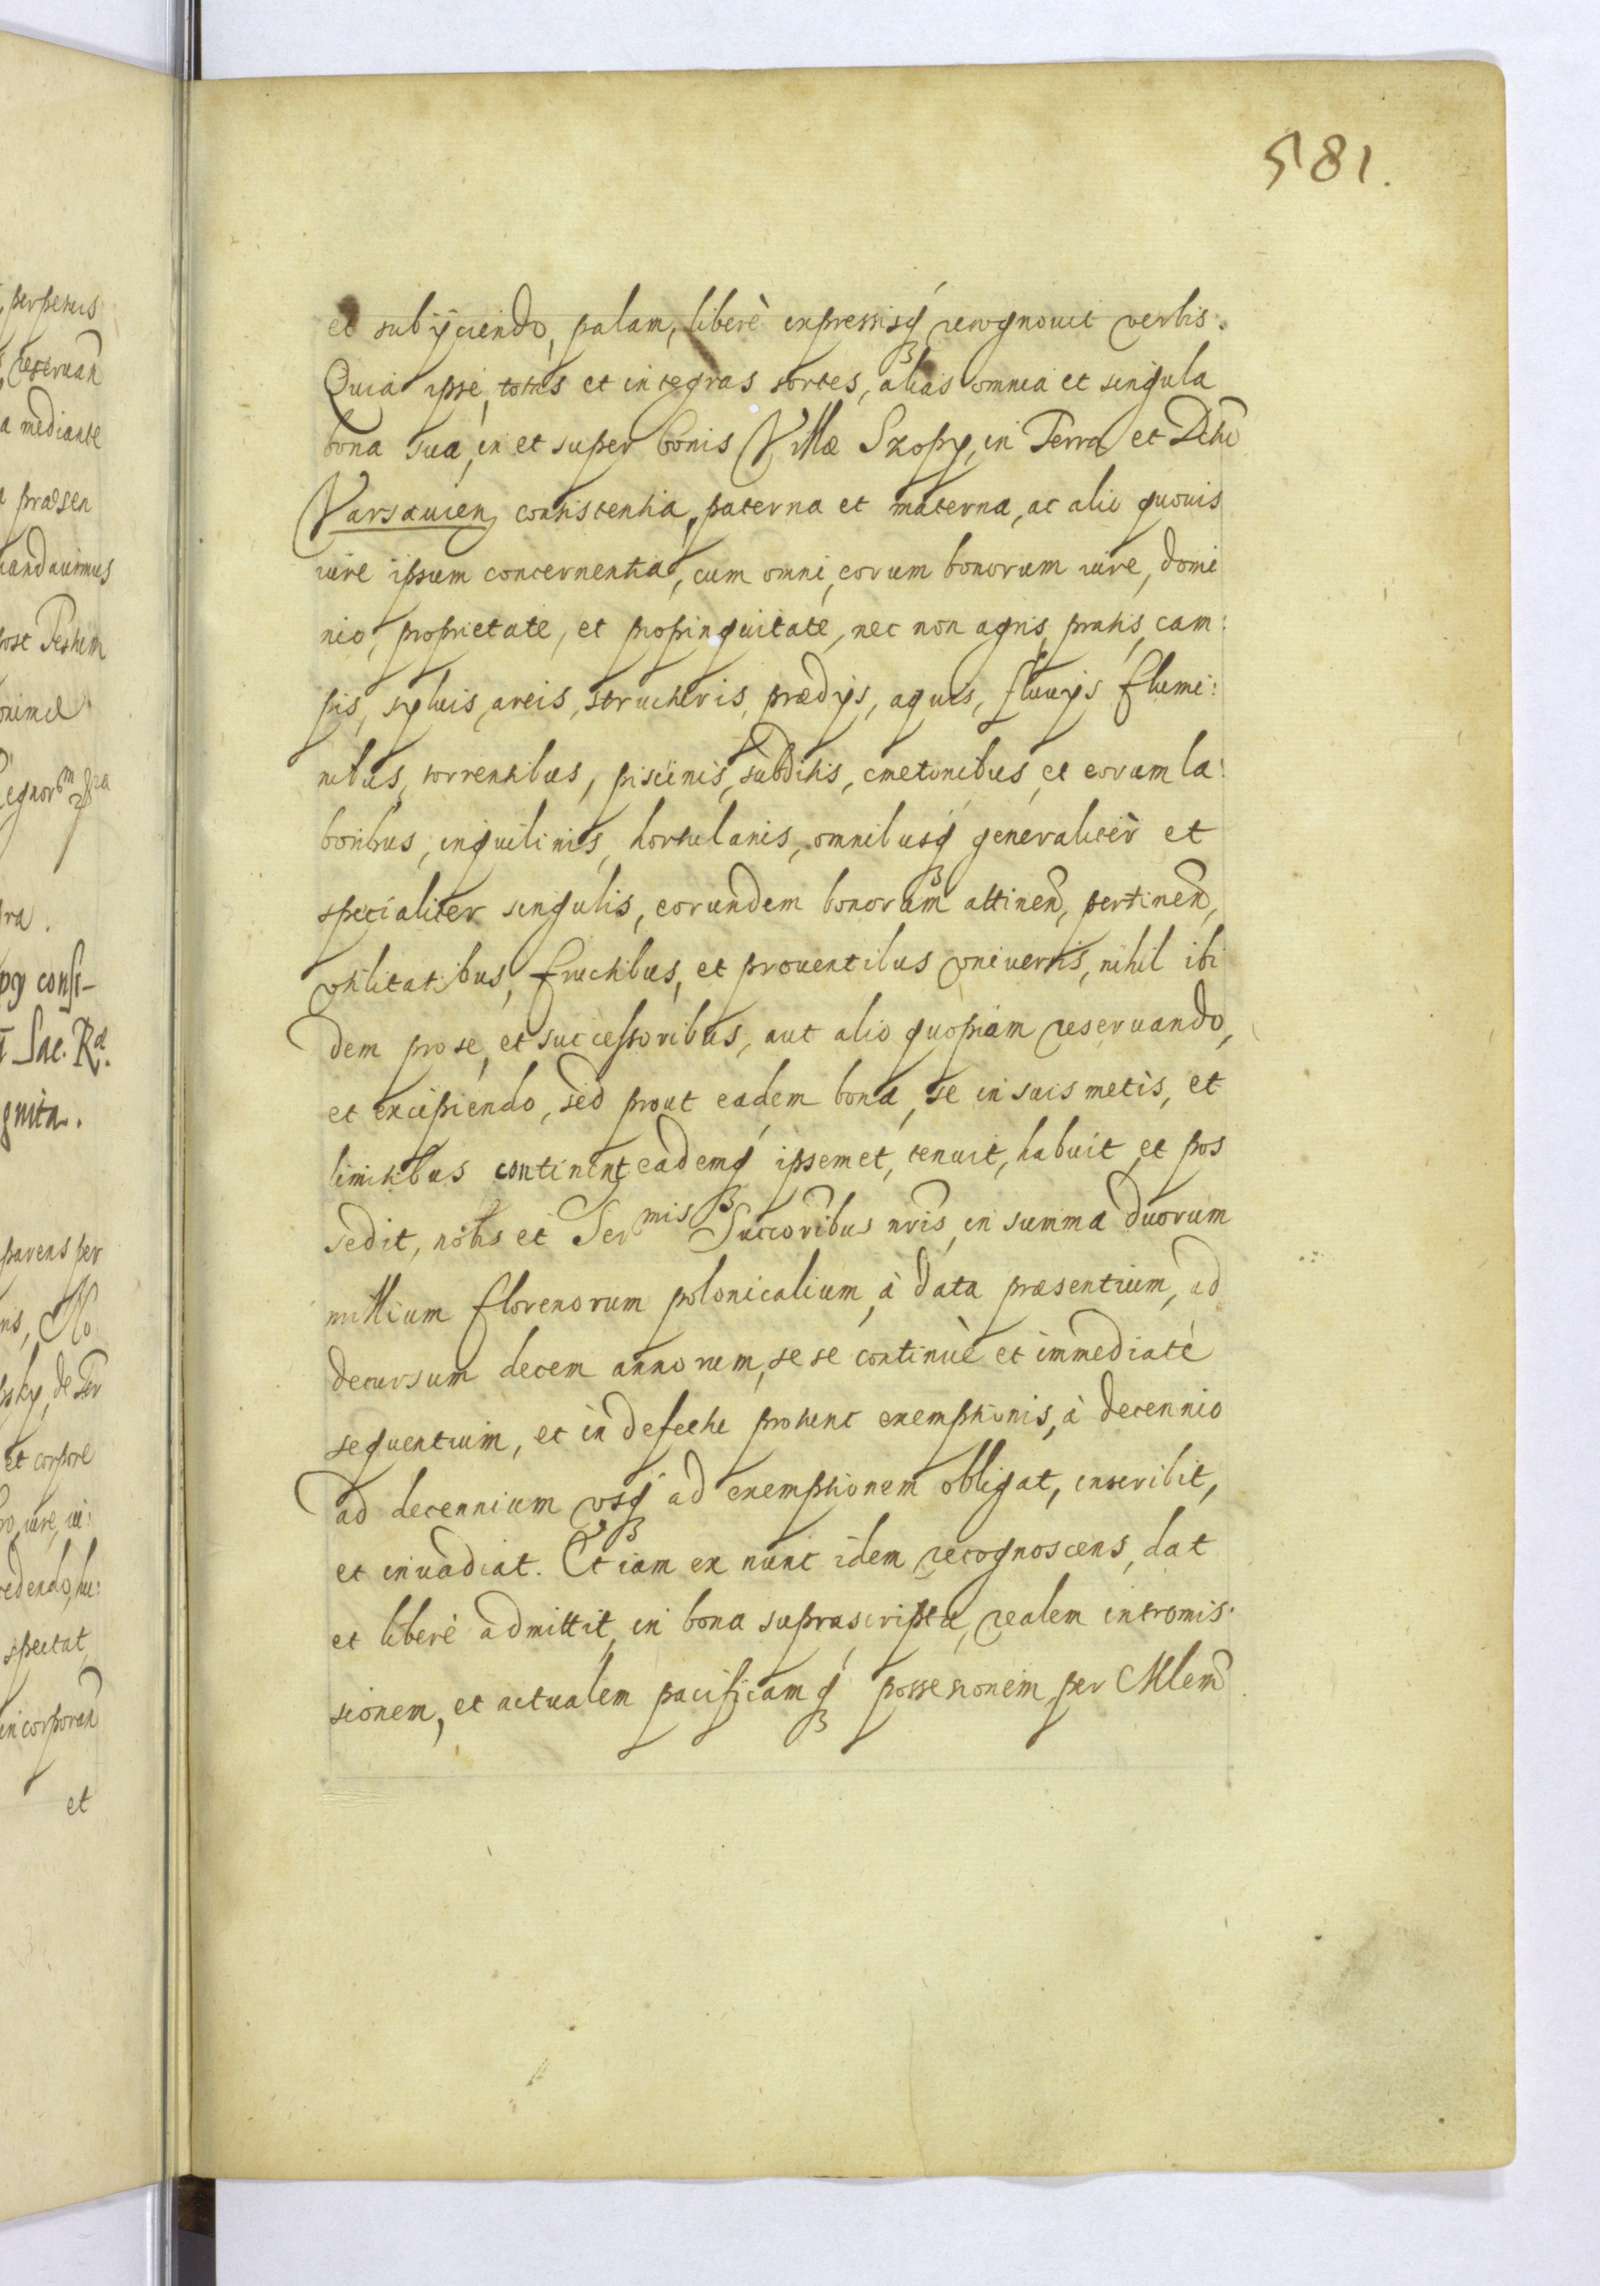 581.
et subijciendo, palam, liberè expressisq́ʒ recognouit verbis.
Quia ipse, totas et integras sortes, alias omnia et singula
bona sua, in et super bonis Villæ Szopy, in Terra et Dictu
Varsauien, consistentia, paterna et materna, ac alio quouis
iure ipsum concernentia, cum omni, eorum bonorum iure, domi
nio, proprietate, et propinquitate, nec non agris, pratis, cam:
pis, syluis, areis, structuris, prædijs, aquis, fluuijs flumi:
nibus, torrentibus, piscinis, subditis, cmetonibus, et eorum la:
boribus, inquilinis, hortulanis, omnibusq́ʒ generalitèr et
specialiter singulis, eorundem bonorum attinen, pertinen,
vtilitatibus, fructibus, et prouentibus vniuersis, nihil ibi
dem pro se, et successoribus, aut alio quopiam reseruando,
et excipiendo, sed prout eadem bona, se in suis metis, et
limitibus continent eademq́ʒ ipsemet, tenuit, habuit, et pos
sedit, nobis et Sermis Succoribus nris, in summa duorum
millium florenorum polonicalium, à data præsentium, ad
decursum decem annorum, sese continuè et immediatè
sequentium, et in defectu protunc exemptionis, à decennio
ad decennium vsq́ʒ ad exemptionem obligat, inscribit,
et inuadiat. Et iam ex nunc idem recognoscens, dat
et liberè admittit, in bona suprascripta, realem intromis:
sionem, et actualem pacificamq́ʒ possesionem per Mlem
perpetuis
reseruan
a mediante
præsen
mandauimus
post Pestem
Regnorm
ra.
py consi-
Sac. Rᵃ.
gnita.
parens per
nis, No
sky, de Ter
et corpore
ro, iure, iu:
redendo, hu:
spectat,
incorporan
et